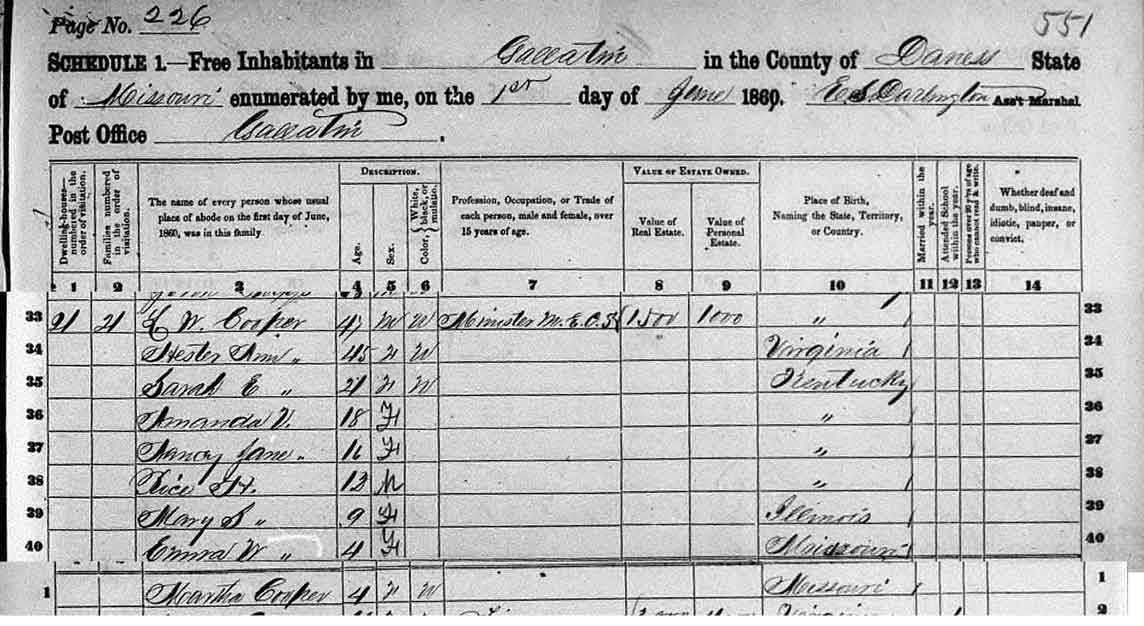 Page No. 226
551
SCHEDULE 1.—Free Inhabitants in Gallatin in the County of Daviess State
of Missouri enumerated by me, on the 1st day of June 1860. E S Darlington Ass't Marshal.
Post Office Gallatin.
Dwelling-houses—numbered in the order of visitation.
Families numbered in the order of visitation.
The name of every person whose usual place of abode on the first day of June, 1860, was in this family.
DESCRIPTION.
Age.
Sex.
Color, { White, black, or mulatto.
Profession, Occupation, or Trade of each person, male and female, over 15 years of age.
VALUE OF ESTATE OWNED.
Value of Real Estate.
Value of Personal Estate.
Place of Birth, Naming the State, Territory, or Country.
Married within the year.
Attended School within the year.
Persons over 20 y'rs of age who cannot read & write.
Whether deaf and dumb, blind, insane, idiotic, pauper, or convict.
1 2 3 4 5 6 7 8 9 10 11 12 13 14
33 21 21 L W. Cooper 47 M W Minister M. E. C. S 1500 1000 " 33
34 Hester Ann " 45 F W Virginia 34
35 Sarah E " 21 F W Kentucky 35
36 Amanda V. 18 F " 36
37 Nancy Jane " 16 F " 37
38 Rice H. 12 M " 38
39 Mary S " 9 F Illinois 39
40 Emma W " 4 F Missouri 40
1 Martha Cooper 4 F W Missouri 1
2